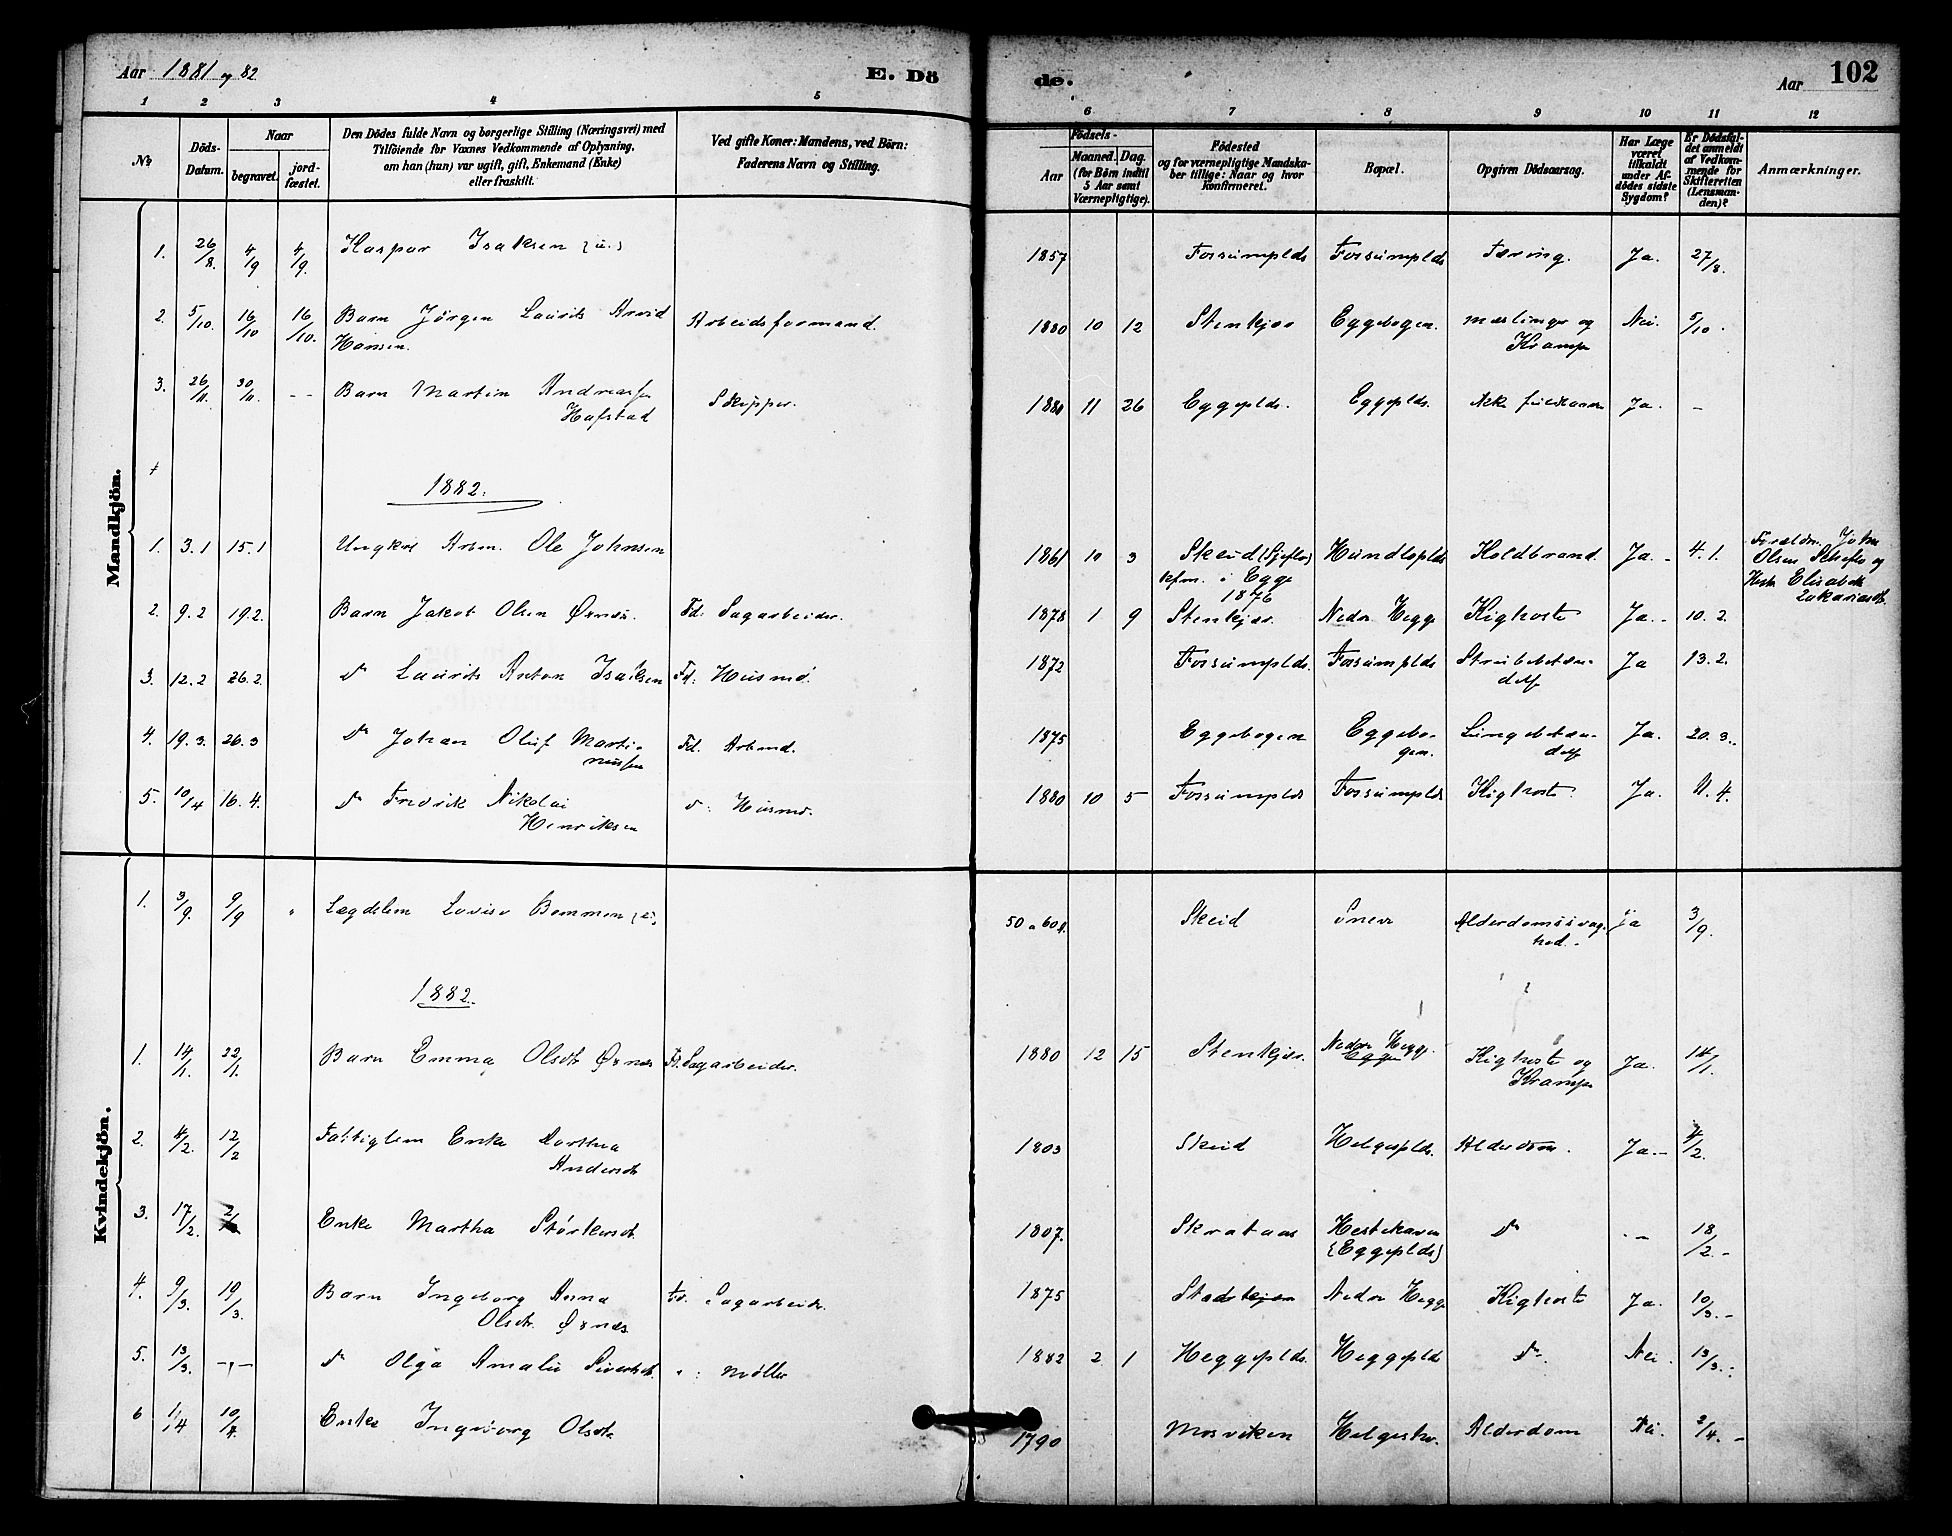 Aar 1881 og 82
E. Dö
de.
Aar
102
1 2 3 4 5 6 7 8 9 10 11 12
No
Döds-
Datum.
Naar
begravet.
jord-
fæstet.
Den Dödes fulde Navn og borgerlige Stilling (Næringsvei) med
Tilföiende for Voxnes Vedkommende af Oplysning,
om han (hun) var ugift, gift, Enkemand (Enke)
eller fraskilt.
Ved gifte Koner: Mandens, ved Börn:
Faderens Navn og Stilling.
Födsels-
Aar
Maaned. Dag.
(for Börn indtil
5 Aar samt
Værnepligtige).
Födested
og for værnepligtige Mandska-
ber tillige: Naar og hvor
konfirmeret.
Bopæl.
Opgiven Dödsaarsag.
Har Læge
været
tilkaldt
under Af-
dödes sidste
Sygdom?
Er Dödsfal-
det anmeldt
af Vedkom-
mende for
Skifteretten
(Lensman-
den)?
Anmærkninger.
Mandkjön.
1. 26/8. 4/9 4/9. Kaspar Isaksen (u.) 1857 Forsumplds Forsumplds Tæring. Ja. 27/8.
2. 5/10. 16/10 16/10. Barn Jörgen Laurits Arvid Arbeidsformand. 1880 10 12 Stenkjær Eggebogen. Mæslinger og Nei. 5/10.
Hansen. Krampe
3. 26/11. 30/11. - - Barn Martin Andreas Skipper. 1881 11 26 Eggeplds. Eggeplds. Ikke Ja. -
Hafstad
1882.
1. 3.1 15.1 Ungkrl Arbm. Ole Johnsen 1861 10 3 Skeid Hundloplds Koldbrand Ja - 4.1. Forældre John
kfm. i Egge Olsen og
1876 Elisabeth
2. 9.2 19.2. Barn Jakob Olsen Ørnes. Fd. Sagarbeider. 1878 1 9 Stenkjær. Nedre Hegge Kighoste Ja.. 10.2.
3. 12.2 26.2. do Laurits Anton Isaksen Fd: Husmd. 1872 Forsumplds. Forsumplds Strubebetæn- Ja 13.2.
delse
4. 19.3. 26.3 do Johan Oluf Marti- Fd. Arbmd. 1875 Eggebogen Eggebo- Lungebetæn- Ja. 20.3..
nussen gen. delse
5. 10/4 16.4. do Fredrik Nikolai d: Husmd. 1880 10 5 Forsumplds Forsumplds Kighoste. Ja. 11.4.
Henriksen
Kvindekjön.
1. 3/9. 9/9 " Lægdslem Lovise Bommen 50 a 60 A. Skeid Alderdomssvag- Ja 3/9.
hed.-
1882.
1. 14/1. 22/1. Barn Emma Olsdt Ørnes Fd. Sagarbeider. 1880 12 15 Stenkjær. Nedre Hegge. Kighoste og Ja. 14/1.
Egge Krampe
2. 4/2. 12/2 Fattiglem Enke Marthea 1803 Skeid Helgesplds. Alderdom. Ja.- 4/2.
Andersdt
3. 17/2. Enke Martha Störkersdt 1807. Skrataas Hestehaven do - - 18/2.-
(Eggeplds)
4. 9/3. 19/3. Barn Ingeborg Anna Fd. Sagarbeider. 1875 Nedre Hegge Kighoste Ja. 10/3.-
Olsdt. Ørnes
5. 13/3. -"- do Olga Amalie Sivertsdt. " : Møller 1882 2 1 Heggeplds. Heggeplds do. Nei. 13/3.
6 1/4 10/4. Enke Ingeborg Olsdt. 1790 Mosviken Alderdom Nei. 2/4. -